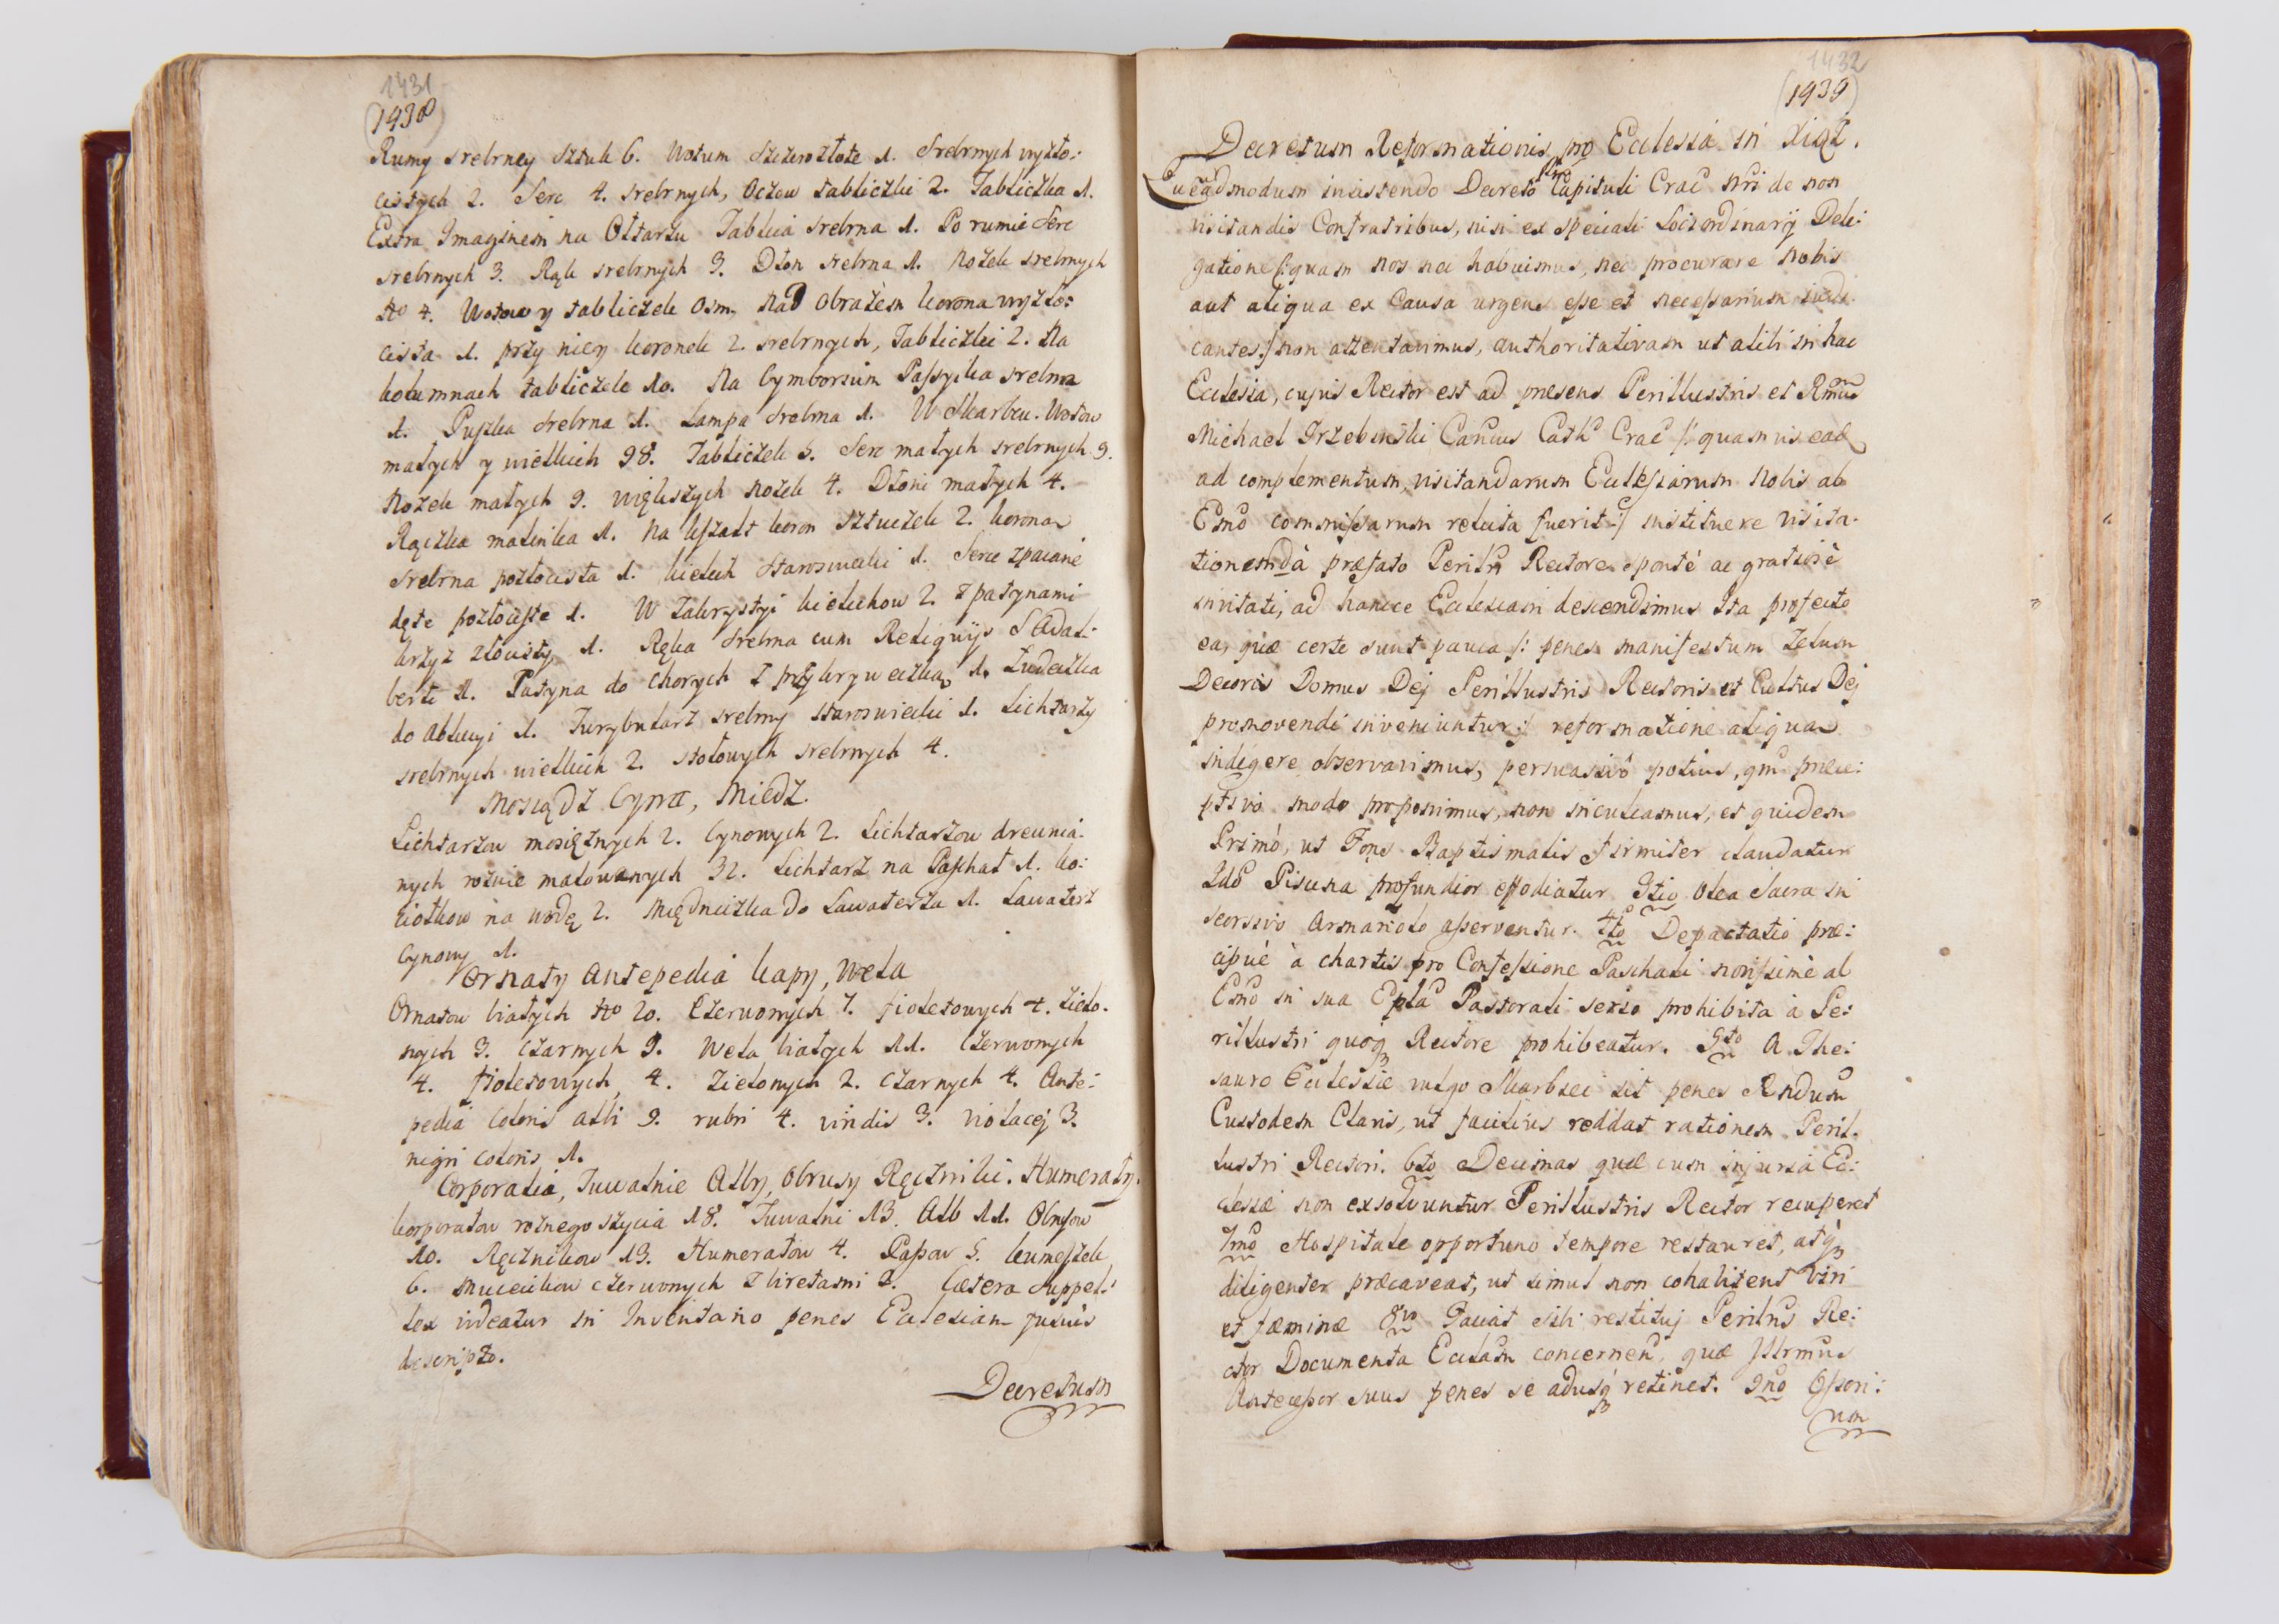 1431
(1438)
Rumy srebrney sztuk 6. Wotum szczerozłote 1. Srebrnych wyzło:
cistych 2. Serc 4. srebrnych, Oczow tabliczki 2. Tabliczka 1.
Extra Imaginem na Ołtarzu Tablica srebrna 1. Po rumie Serc
srebrnych 3. Rąk srebrnych 3. Dłon srebrna 1. Nożek srebrnych
No 4. Wotow y tabliczek Osm, Nad Obrazem korona wyzło:
cista 1. przy niey koronek 2. srebrnych, Tabliczki 2. Na
kolumnach tabliczek 10. Na Cymborium Passyika srebrna
1. Puszka srebrna 1. Lampa srebrna 1. W Skarbcu. Wotow
małych y wielkich 98. Tabliczek 5. Serc małych srebrnych 9.
Nożek małych 9. większych nożek 4. Dłoni małych 4.
Rączka malinka 1. Na kształt koron sztuczek 2. korona
srebrna pozłocista 1. kielich staroswiecki 1. Serce zpaiane
dęte pozłociste 1. W Zakrystyi kielichow 2. z patynami
krzyż złocisty 1. Ręka srebrna cum Reliquijs S Adal:
berti 1. Patyna do Chorych z przykryweczką 1. Łudeczka
do Ablucyi 1. Turybularz srebrny staroswiecki 1. Lichtarzy
srebrnych wielkich 2. stołowych srebrnych 4.
Mosiądz Cyna, Miedz.
Lichtarzow mosiężnych 2. Cynowych 2. Lichtarzow drewnia:
nych rożnie malowanych 32. Lichtarz na Paschał 1. ko:
ciołkow na wodę 2. Miedniczka do Lawaterza 1. Lawaterz
Cynowy 1.
Ornaty Antepedia kapy, Wela
Ornatow białych No 20. Czerwonych 7. fioletowych 4. zielo:
nych 3. Czarnych 9. Wela białych 11. Czerwonych
4. fioletowych 4. zielonych 2. Czarnych 4. Ante:
pedia Coloris albi 9. rubri 4. viridis 3. violacej 3.
nigri coloris 1.
Corporalia, Tuwalnie Alby, Obrusy Ręczniki. Humerały.
korporałow rożnego szycia 18. Tuwalni 13. Alb 11. Obrusow
10. Ręcznikow 13. Humerałow 4. Pasow 5. komeszek
6. Mucecikow czerwonych z biretami 2. Cætera suppel:
lex videatur in Inventario penes Ecclesiam fusius
descripto.
Decretum
1432
(1439)
Decretum Reformationis pro Ecclesia in Xiąż.
Queadmodum insistendo Decreto Plnr Capituli Crac nri de non
visitandis Confratribus, nisi ex speciali Loci ordinarij Dele:
gatione /:quam nos nec habuimus, nec procurare nobis
aut aliqua ex Causa urgens esse et necessarium judi:
cantes:/ non attentavimus, authoritativam ut alibi in hac
Ecclesia, cujus Rector est ad præsens Perillustris et Rmus
Michael Trzebinski Cancus Cathc Crac /: quamvis ea
ad complementum visitandarum Ecclesiarum nobis ab
Emo commissarum relicta fuerit:/ instituere visita:
tionem à præfato Perilri Rectore sponté ac gratiosè
invitati, ad hancce Ecclesiam descendimus Ita profecto
ea, quæ certe sunt pauca /: penes manifestum Zelum
Decoris Domus Dej Perillustris Rectoris et Cultus Dej
promovendi inveniuntur:/ reformatione aliqua
indigere observavimus, persuasivô potius, qm præce:
ptivo modo proponimus, non inculcamus, et quidem
Primò, ut Fons Baptismalis firmiter claudatur
2do Piscina profundior effodiatur 3tio Olea Sacra in
seorsivo Armariolo asserventur. 4to Depactatio præ:
cipuè à chartis pro Confessione Paschali novissimè ab
Emo in sua Epla Pastorali serio prohibita à Pe:
rillustri quoq Rectore prohibeatur. 5to A The:
sauro Ecclesiæ vulgo Skarbiec sit penes Rndum
Custodem Clavis, ut facilius reddat rationem Peril:
lustri Rectori. 6to Decimas quæ cum injuria Ec:
clesiæ non exsolvuntur Perillustris Rector recuperet
7mo Hospitale opportuno tempore restauret, atq
diligenter præcaveat, ut simul non cohabitent Viri
et fæminæ 8vo Faciat sibi restitui Perilris Re:
ctor Documenta Ecclam concernen, quæ Illrmus
Antecessor suus penes se adusq retinet. 9no Ossori:
um